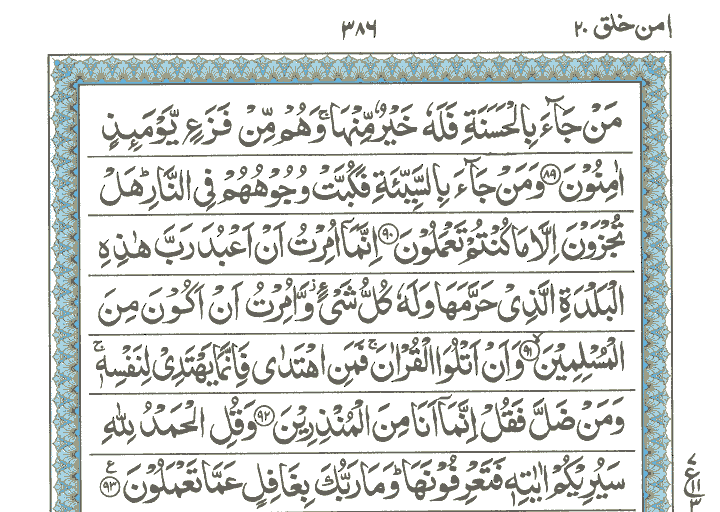 امن خلق ٢٠
٣٨٦
مَنْ جَآءَ بِالْحَسَنَةِ فَلَهٗ خَيْرٌ مِّنْهَا ۚ وَهُمْ مِّنْ فَزَعٍ يَّوْمَىِٕذٍ
اٰمِنُوْنَ ﴿٨٩﴾ وَمَنْ جَآءَ بِالسَّيِّئَةِ فَكُبَّتْ وُجُوْهُهُمْ فِى النَّارِ ؕ هَلْ
تُجْزَوْنَ اِلَّا مَا كُنْتُمْ تَعْمَلُوْنَ ﴿٩٠﴾ اِنَّمَاۤ اُمِرْتُ اَنْ اَعْبُدَ رَبَّ هٰذِهِ
الْبَلْدَةِ الَّذِىْ حَرَّمَهَا وَلَهٗ كُلُّ شَىْءٍ ؗ وَّاُمِرْتُ اَنْ اَكُوْنَ مِنَ
الْمُسْلِمِيْنَ ﴿٩١﴾ ۙ وَاَنْ اَتْلُوَا الْقُرْاٰنَ ۚ فَمَنِ اهْتَدٰى فَاِنَّمَا يَهْتَدِىْ لِنَفْسِهٖ ۚ
وَمَنْ ضَلَّ فَقُلْ اِنَّمَاۤ اَنَا مِنَ الْمُنْذِرِيْنَ ﴿٩٢﴾ وَقُلِ الْحَمْدُ لِلّٰهِ
سَيُرِيْكُمْ اٰيٰتِهٖ فَتَعْرِفُوْنَهَا ؕ وَمَا رَبُّكَ بِغَافِلٍ عَمَّا تَعْمَلُوْنَ ﴿٩٣﴾ ع
٧
ع ١١
٣